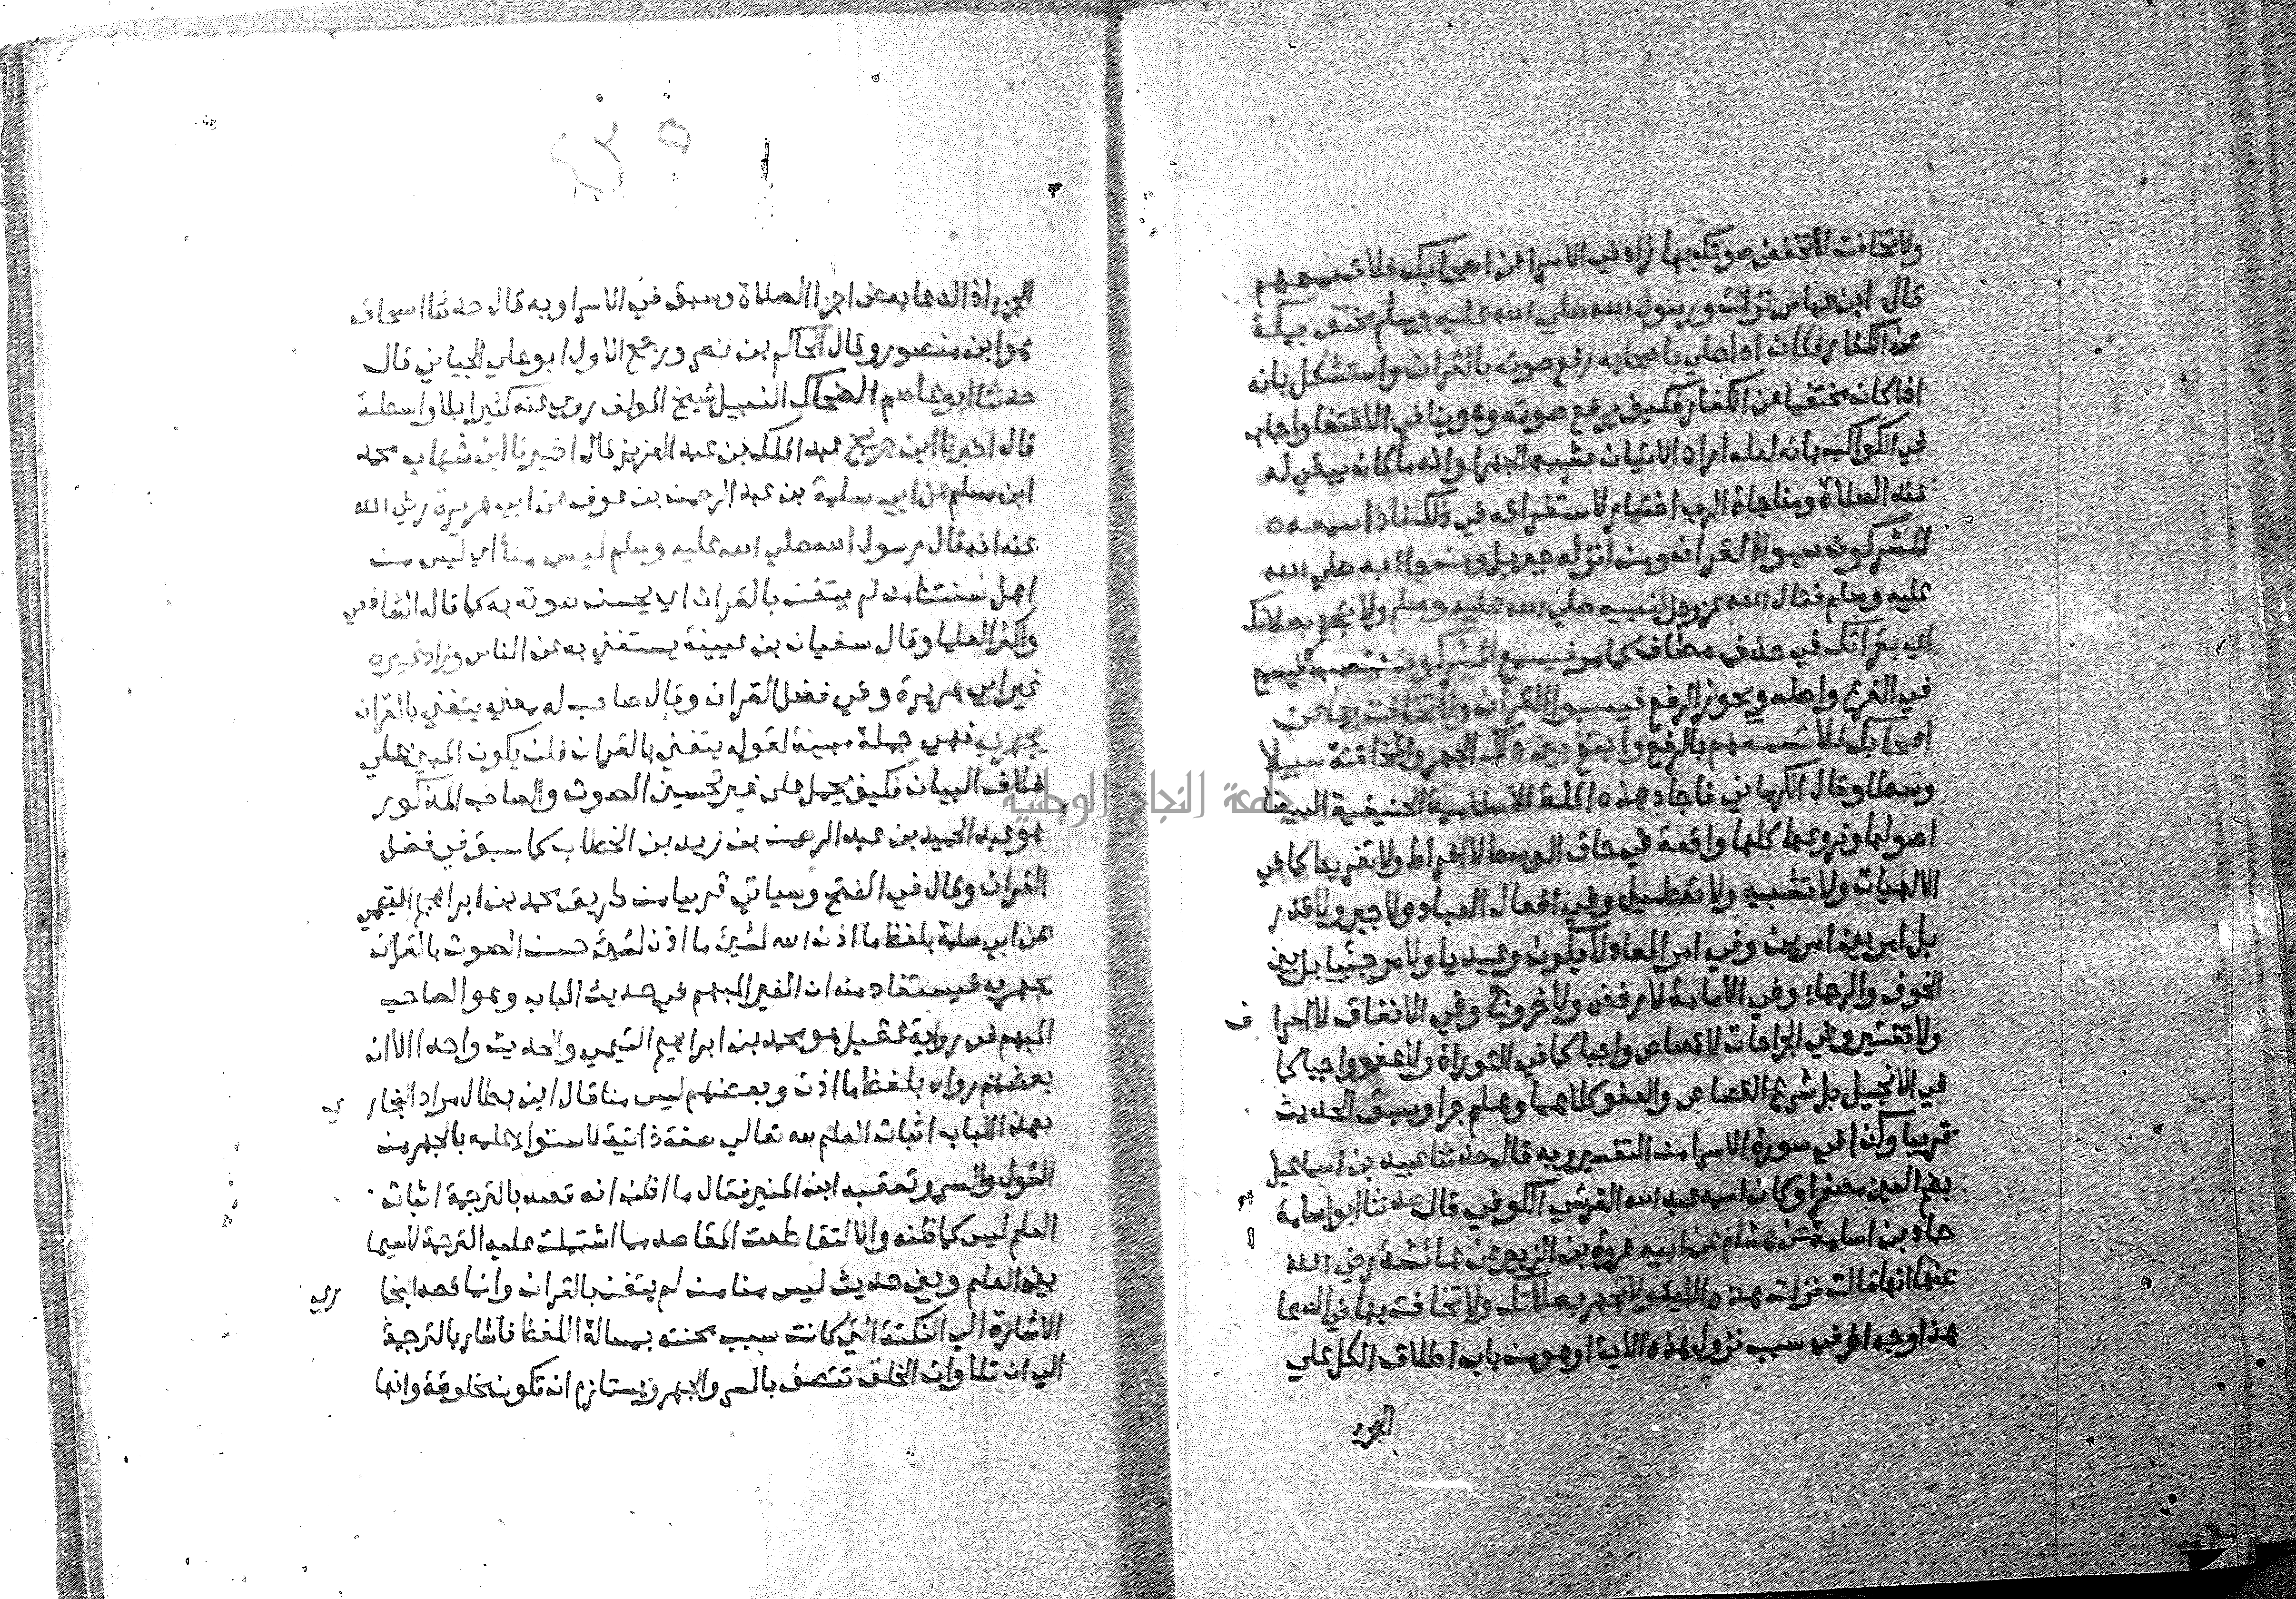 ولا تخافت لا تخفض صوتك بها زاد في الاسرا عن اصحابك فلا تسمعهم
قال ابن عباس نزلت ورسول الله صلي الله عليه وسلم مختف بمكة
عن الكفار فكان اذا صلي باصحابه رفع صوته بالقران واستشكل بانه
اذا كان مختفيا عن الكفار فكيف يرفع صوته وهو ينافي الاختفا واجاب
في الكواكب بانه لعله اراد الاتيان بشبه الجهر او انه ما كان يبقي له
عند الصلاة ومناجاة الرب اختيار لاستغراقه في ذلك فاذا سمعه
المشركون سبوا القران ومن انزله جبريل ومن جاء به صلي الله
عليه وسلم فقال الله عز وجل لنبيه صلي الله عليه وسلم ولا تجهر بصلاتك
اي بقراتك في حذف مضاف كما مر فيسمع المشركون بنصب فيسمع
في الفرع واصله ويجوز الرفع فيسبوا القران ولا تخافت بها عن
اصحابك فلا تسمعهم بالرفع وابتغ بين ذلك الجهر والمخافتة سبيلا
وسطا وقال الكرماني فاجاد هذه الملة الاسلامية الحنيفية البيضا
اصولها وفروعها كلها واقعة في حاق الوسط لا افراط ولا تفريط كما في
الالهيات ولا تشبيه ولا تعطيل وفي افعال العباد ولا جبر ولا قدر
بل امر بين امرين وفي امر المعاد لا يكون وعيديا ولا مرجئيا بل بين
الخوف والرجاء وفي الامامة لا رفض ولا خروج وفي الانفاق لا اسرا ف
ولا تقتير وفي الجراحات لا قصاص واجبا كما في التوراة ولا عفو واجبا كما
في الانجيل بل شرع القصاص والعفو كلاهما وهلم جرا وسبق الحديث
قريبا وكذا في سورة الاسرا من التفسير وبه قال حدثنا عبيد بن اسماعيل
بضم العين مصغرا وكان اسمه عبد الله القرشي الكوفي قال حدثنا ابو اسامة
حماد بن اسامة عن هشام عن ابيه عروة بن الزبير عن عائشة رضي الله
عنها انها قالت نزلت هذه الاية ولا تجهر بصلاتك ولا تخافت بها في الدعا
هذا وجه اخر في سبب نزول هذه الاية او هو من باب اطلاق الكل علي
الجزء
٤٣٥
الجزء اذ الدعا بعض اجزا الصلاة وسبق في الاسرا وبه قال حدثنا اسحاق
هو ابن منصور وقال الحاكم بن نصر ورجع الاول ابو علي الجياني قال
حدثنا ابو عاصم الضحاك النبيل شيخ المولف روي عنه كثيرا بلا واسطة
قال اخبرنا ابن جريج عبد الملك بن عبد العزيز قال اخبرنا ابن شهاب محمد
ابن مسلم عن ابي سلمة بن عبد الرحمن بن عوف عن ابي هريرة رضي الله
عنه انه قال رسول الله صلي الله عليه وسلم ليس منا اي ليس من
اهل سنتنا من لم يتغن بالقران اي يحسن صوته به كما قاله الشافعي
واكثر العلما وقال سفيان بن عيينة يستغني به عن الناس وزاد غيره
غير ابي هريرة وفي فضل القران وقال صاحب له معني يتغني بالقران
يجهر به فهي جملة مبينة لقوله يتغني بالقران فلن يكون المبين علي
خلاف البيان فكيف يحمل علي غير تحسين الصوت والصاحب المذكور
هو عبد الحميد بن عبد الرحمن بن زيد بن الخطاب كما سبق في فضل
القران وقال في الفتح وسياتي قريبا من طريق محمد بن ابراهيم التيمي
عن ابي سلمة بلفظ ما اذن الله لشيء ما اذن لشيء حسن الصوت بالقران
يجهر به فيستفاد منه ان الغير المبهم في حديث الباب وهو الصاحب
المبهم في رواية عقيل هو محمد بن ابراهيم التيمي والحديث واحد الا ان
بعضهم رواه بلفظ ما اذن وبعضهم ليس منا قال ابن بطال مراد البخار ي
بهذا الباب اثبات العلم لله تعالي صفة ذاتية لاستوا علمه بالجهر من
القول والسر وتعقبه ابن المنير فقال ما اظن انه قصد بالترجمة اثبات
العلم ليس كما ظنه والا لتقاطعت المقاصد مما اشتملت عليه الترجمة لاسيما
بين العلم وبين حديث ليس منا من لم يتغن بالقران وانما قصد البخا ري
الاشارة الي النكتة التي كانت سبب محنته بمسالة اللفظ فاشار بالترجمة
الي ان تلاوات الخلق تتصف بالسر والجهر ويستلزم ان تكون مخلوقة وانها
جامعة النجاح الوطنية